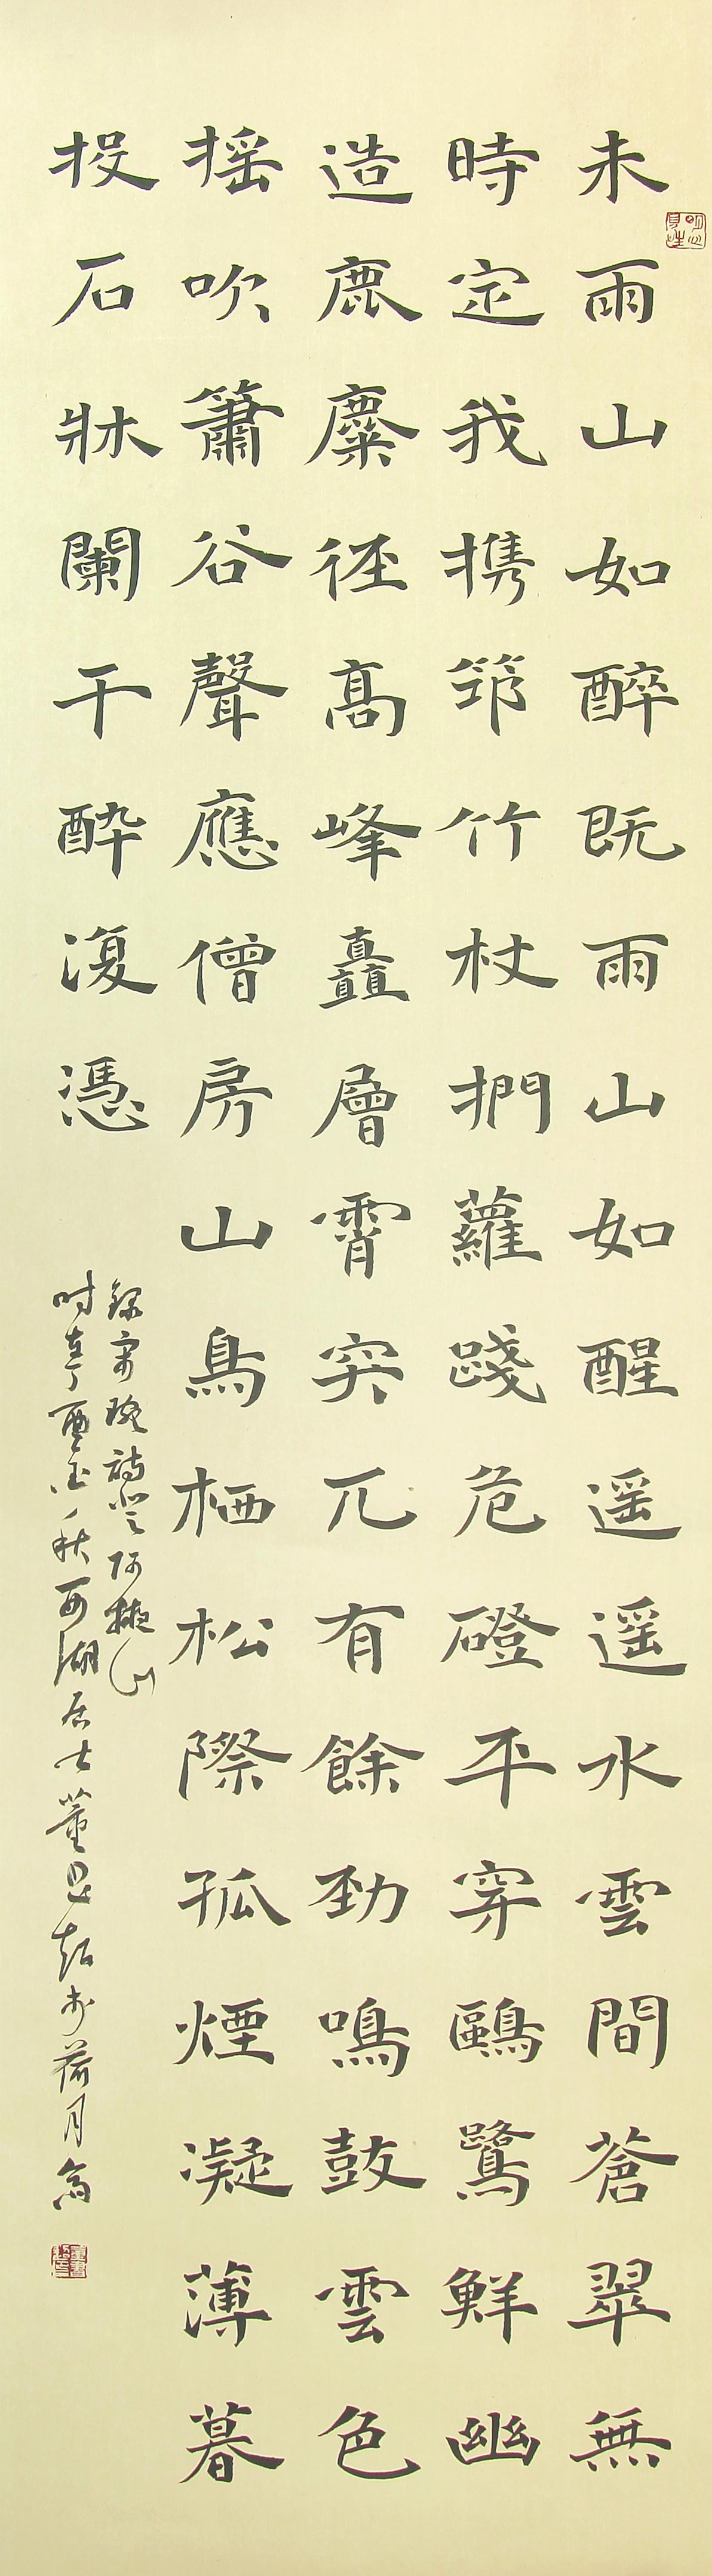 明心見性
未雨山如醉既雨山如醒遥遥水雲間蒼翠無
時定我携筇竹杖捫蘿踐危磴平穿鷗鷺鮮幽
造鹿麋徑高峰矗層霄突兀有餘勁鳴鼓雲色
摇吹簫谷聲應僧房山鳥栖松際孤煙凝薄暮
投石牀闌干酔復憑
録宋琬詩登阿掖山
时在丁酉金秋西湖居士董思超书荷月斋